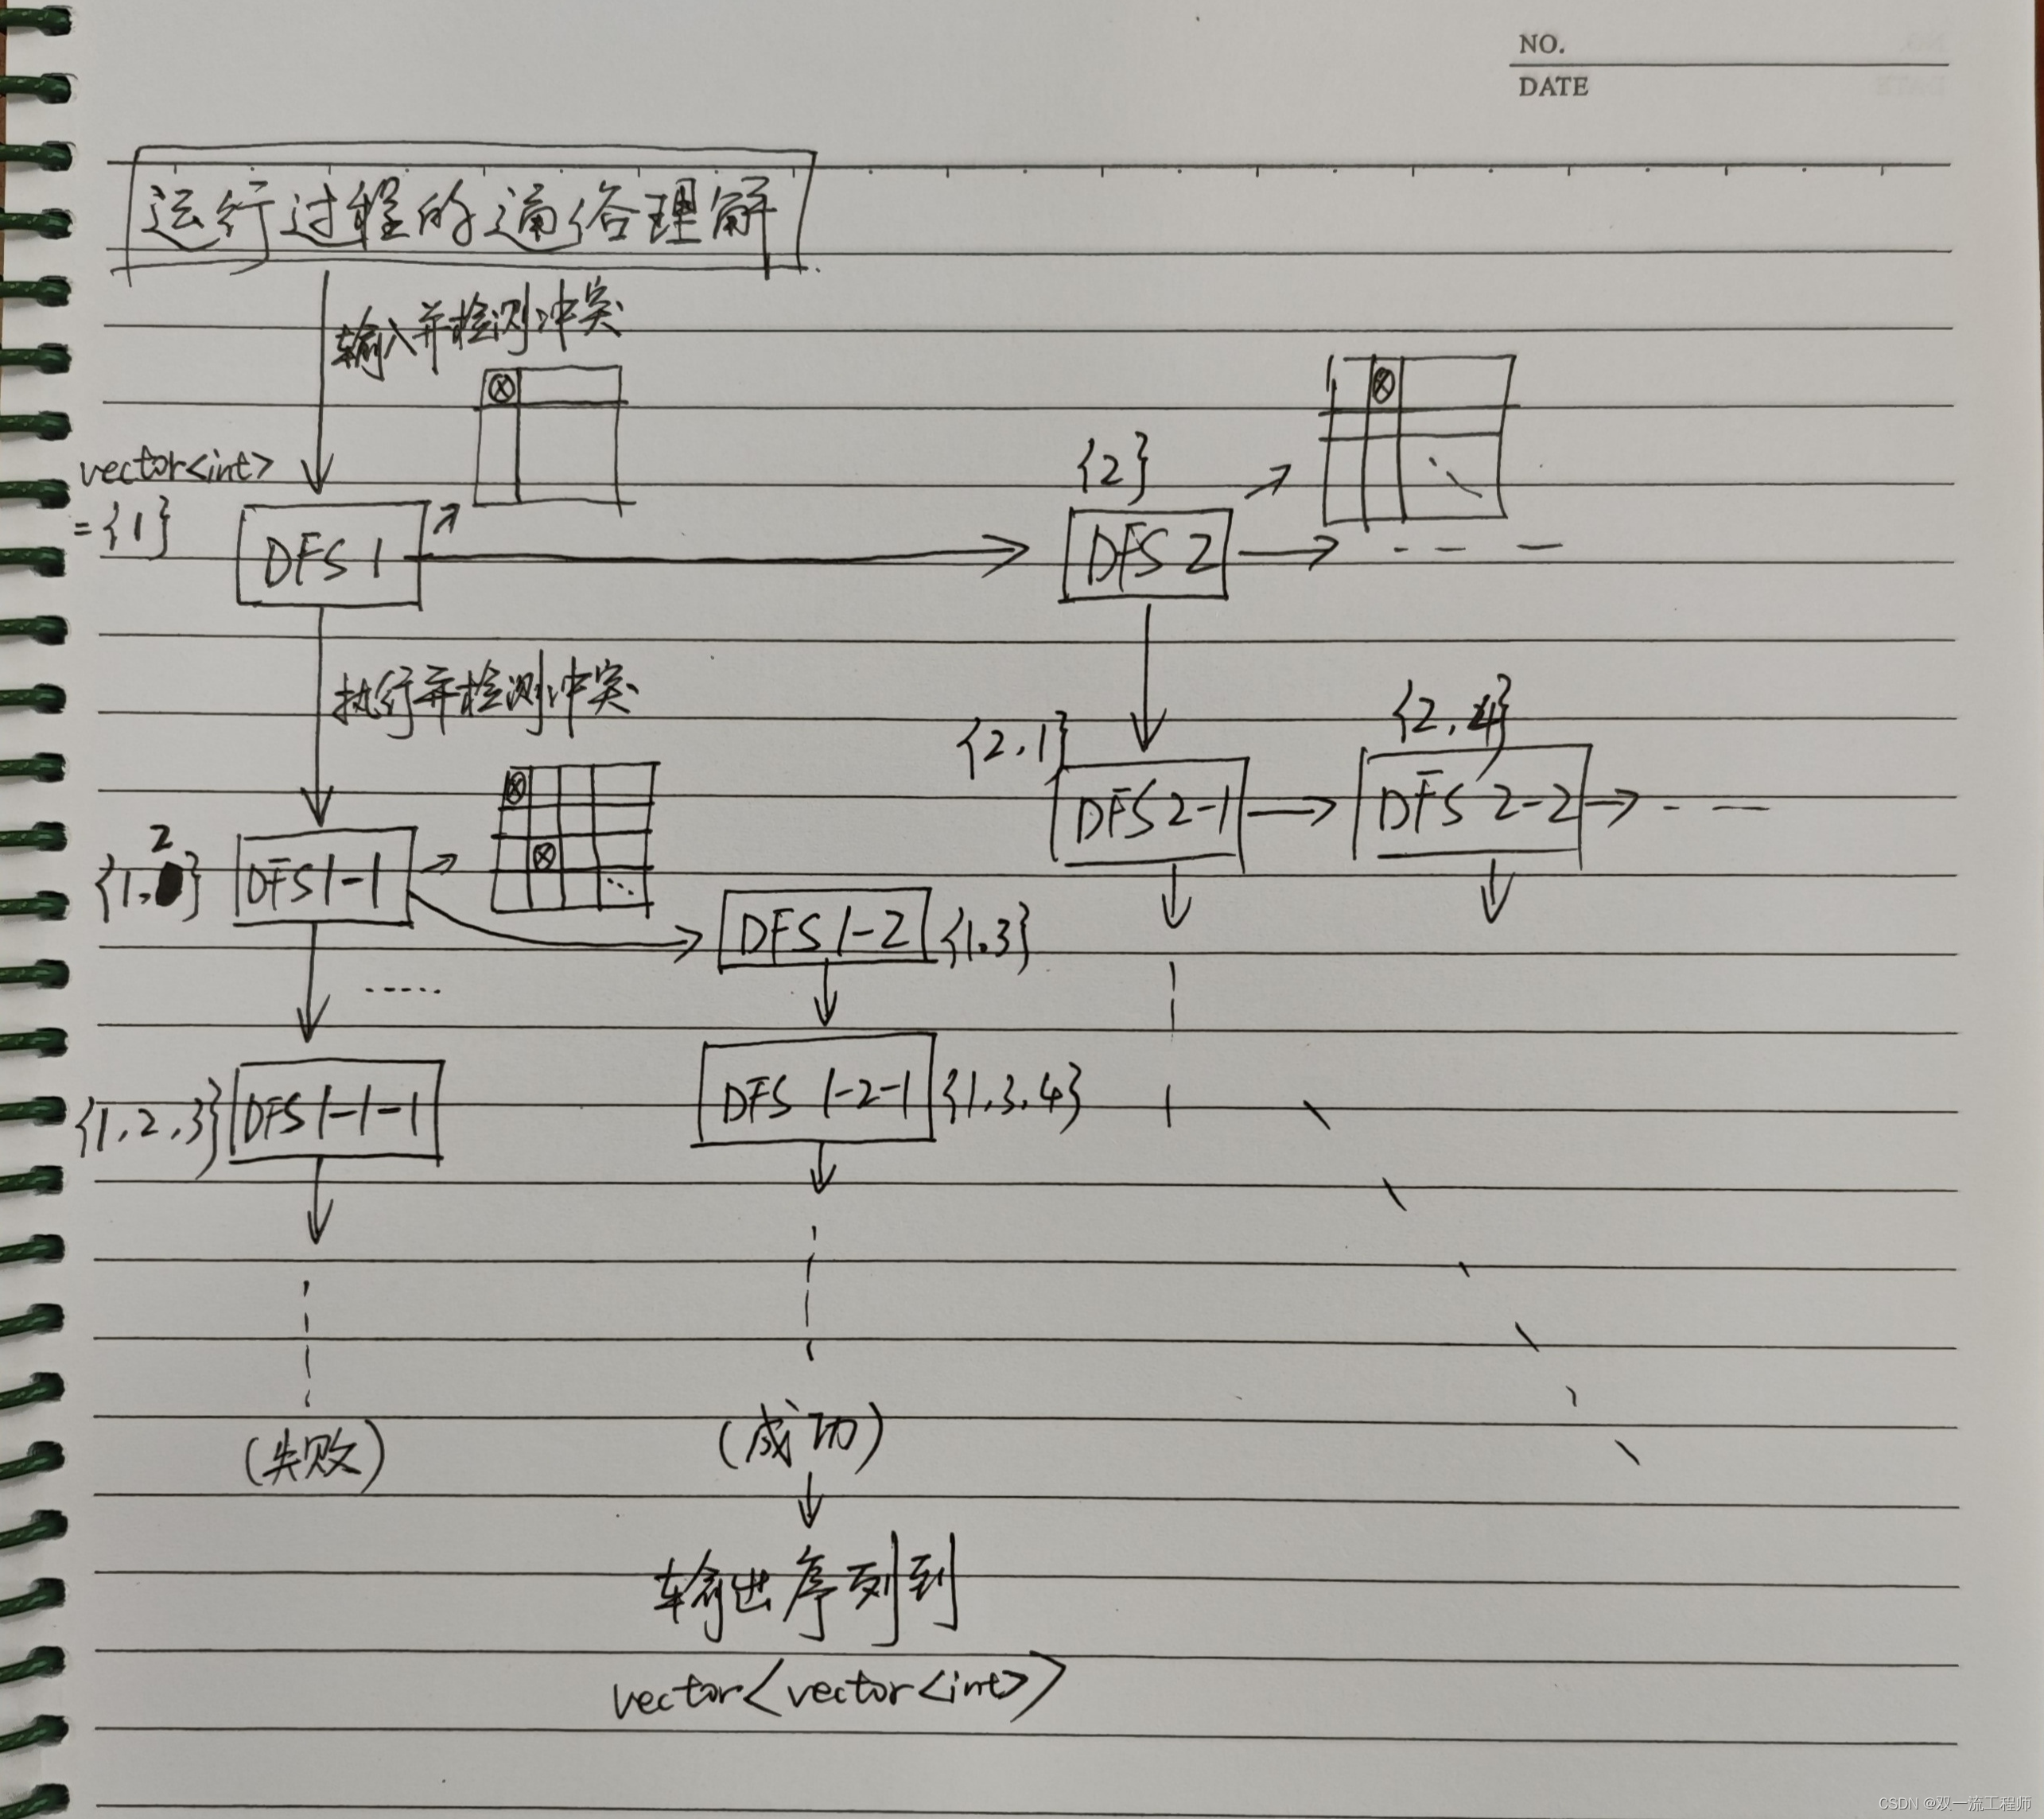 NO.
DATE
运行过程的通俗理解
输入并检测冲突
vector<int>
={1}
DFS 1
{2}
DFS 2
执行并检测冲突
{2,1}
{2,4}
DFS 2-1
DFS 2-2
2
{1, }
DFS 1-1
DFS 1-2
{1.3}
{1,2,3}
DFS 1-1-1
DFS 1-2-1
{1,3,4}
(失败)
(成功)
输出序列到
vector<vector<int>>
CSDN @双一流工程师